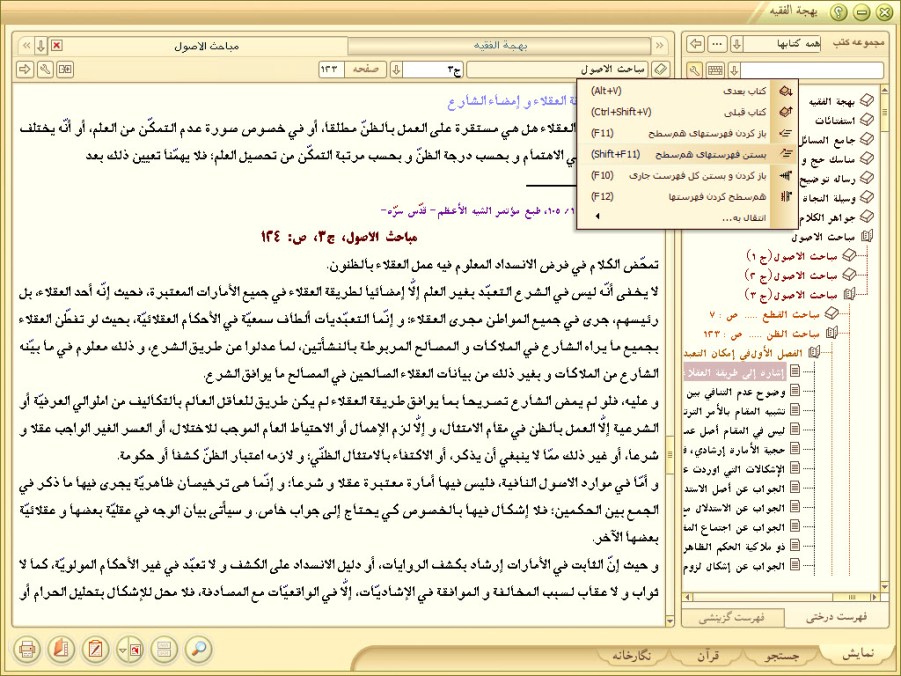 بهجة الفقيه
مجموعه کتب
همه کتابها
بهجة الفقيه
مباحث الاصول
مباحث الاصول
ج۳
صفحه
۱۲۳
کتاب بعدی (Alt+V)
کتاب قبلی (Ctrl+Shift+V)
باز کردن فهرستهای هم‌سطح (F11)
بستن فهرستهای هم‌سطح (Shift+F11)
باز کردن و بستن کل فهرست جاری (F10)
هم‌سطح کردن فهرستها (F12)
انتقال به...
بهجة الفقيه
استفتائات
جامع المسائل
مناسك حج و
رساله توضيح
وسيلة النجاة
جواهر الكلام
مباحث الاصول
مباحث الاصول(ج ۱)
مباحث الاصول(ج ۲)
مباحث الاصول(ج ۳)
مباحث القطع ..... ص : ۷
مباحث الظن ..... ص : ۱۲۳
الفصل الأول في إمكان التعبد
إشارة إلى طريقة العقلا
وضوح عدم التنافي بين
تشبيه المقام بالأمر الترت
ليس في المقام أصل عم
حجية الأمارة إرشادي، ف
الإشكالات التي اوردت ع
الجواب عن أصل الاستد
الجواب عن الاستدلال مع
الجواب عن اجتماع المف
ذو ملاكية الحكم الظاهر
الجواب عن إشكال لزوم
فهرست درختی
فهرست گزینشی
العقلاء و إمضاء الشارع
العقلاء هل هي مستقرة على العمل بالظنّ مطلقاً، أو في خصوص صورة عدم التمكّن من العلم، أو أنّه يختلف
في الاهتمام و بحسب درجة الظنّ و بحسب مرتبة التمكّن من تحصيل العلم؛ فلا يهمّنا تعيين ذلك بعد
۱/ ۱۰۵، طبع مؤتمر الشيه الأعظم- قدّس سرّه-
مباحث الاصول، ج۳، ص: ۱۲۴
تمحّض الكلام في فرض الانسداد المعلوم فيه عمل العقلاء بالظنون.
لا يخفى أنّه ليس في الشرع التعبّد بغير العلم إلّا إمضائيا لطريقة العقلاء في جميع الأمارات المعتبرة، فحيث إنّه أحد العقلاء، بل
رئيسهم، جرى في جميع المواطن مجرى العقلاء؛ و إنّما التعبّديات ألطاف سمعيّة في الأحكام العقلائيّة، بحيث لو تفطّن العقلاء
بجميع ما يراه الشارع في الملاكات و المصالح المربوطة بالنشأتين، لما عدلوا عن طريق الشرع، و ذلك معلوم في ما بيّنه
الشارع من الملاكات و بغير ذلك من بيانات العقلاء الصالحين في المصالح ما يوافق الشرع.
و عليه، فلو لم يمض الشارع تصريحا بما يوافق طريقة العقلاء لم يكن طريق للعاقل العالم بالتكاليف من الموالي العرفيّة أو
الشرعية إلّا العمل بالظن في مقام الامتثال، و إلّا لزم الإهمال أو الاحتياط العام الموجب للاختلال، أو العسر الغير الواجب عقلا و
شرعا، أو غير ذلك ممّا لا ينبغي أن يذكر، أو الاكتفاء بالامتثال الظنّي؛ و لازمه اعتبار الظنّ كشفا أو حكومة.
و أمّا في موارد الاصول النافية، فليس فيها أمارة معتبرة عقلا و شرعا؛ و إنّما هى ترخيصان ظاهريّة يجرى فيها ما ذكر في
الجمع بين الحكمين؛ فلا إشكال فيها بالخصوص كي يحتاج إلى جواب خاص. و سيأتي بيان الوجه في عقليّة بعضها و عقلائية
بعضها الآخر.
و حيث إنّ الثابت في الأمارات إرشاد بكشف الروايات، أو دليل الانسداد على الكشف و لا تعبّد في غير الأحكام المولويّة، كما لا
ثواب و لا عقاب لسبب المخالفة و الموافقة في الإشاديّات، إلّا في الواقعيّات مع المصادفة، فلا محل للإشكال بتحليل الحرام أو
نمایش
جستجو
قرآن
نگارخانه